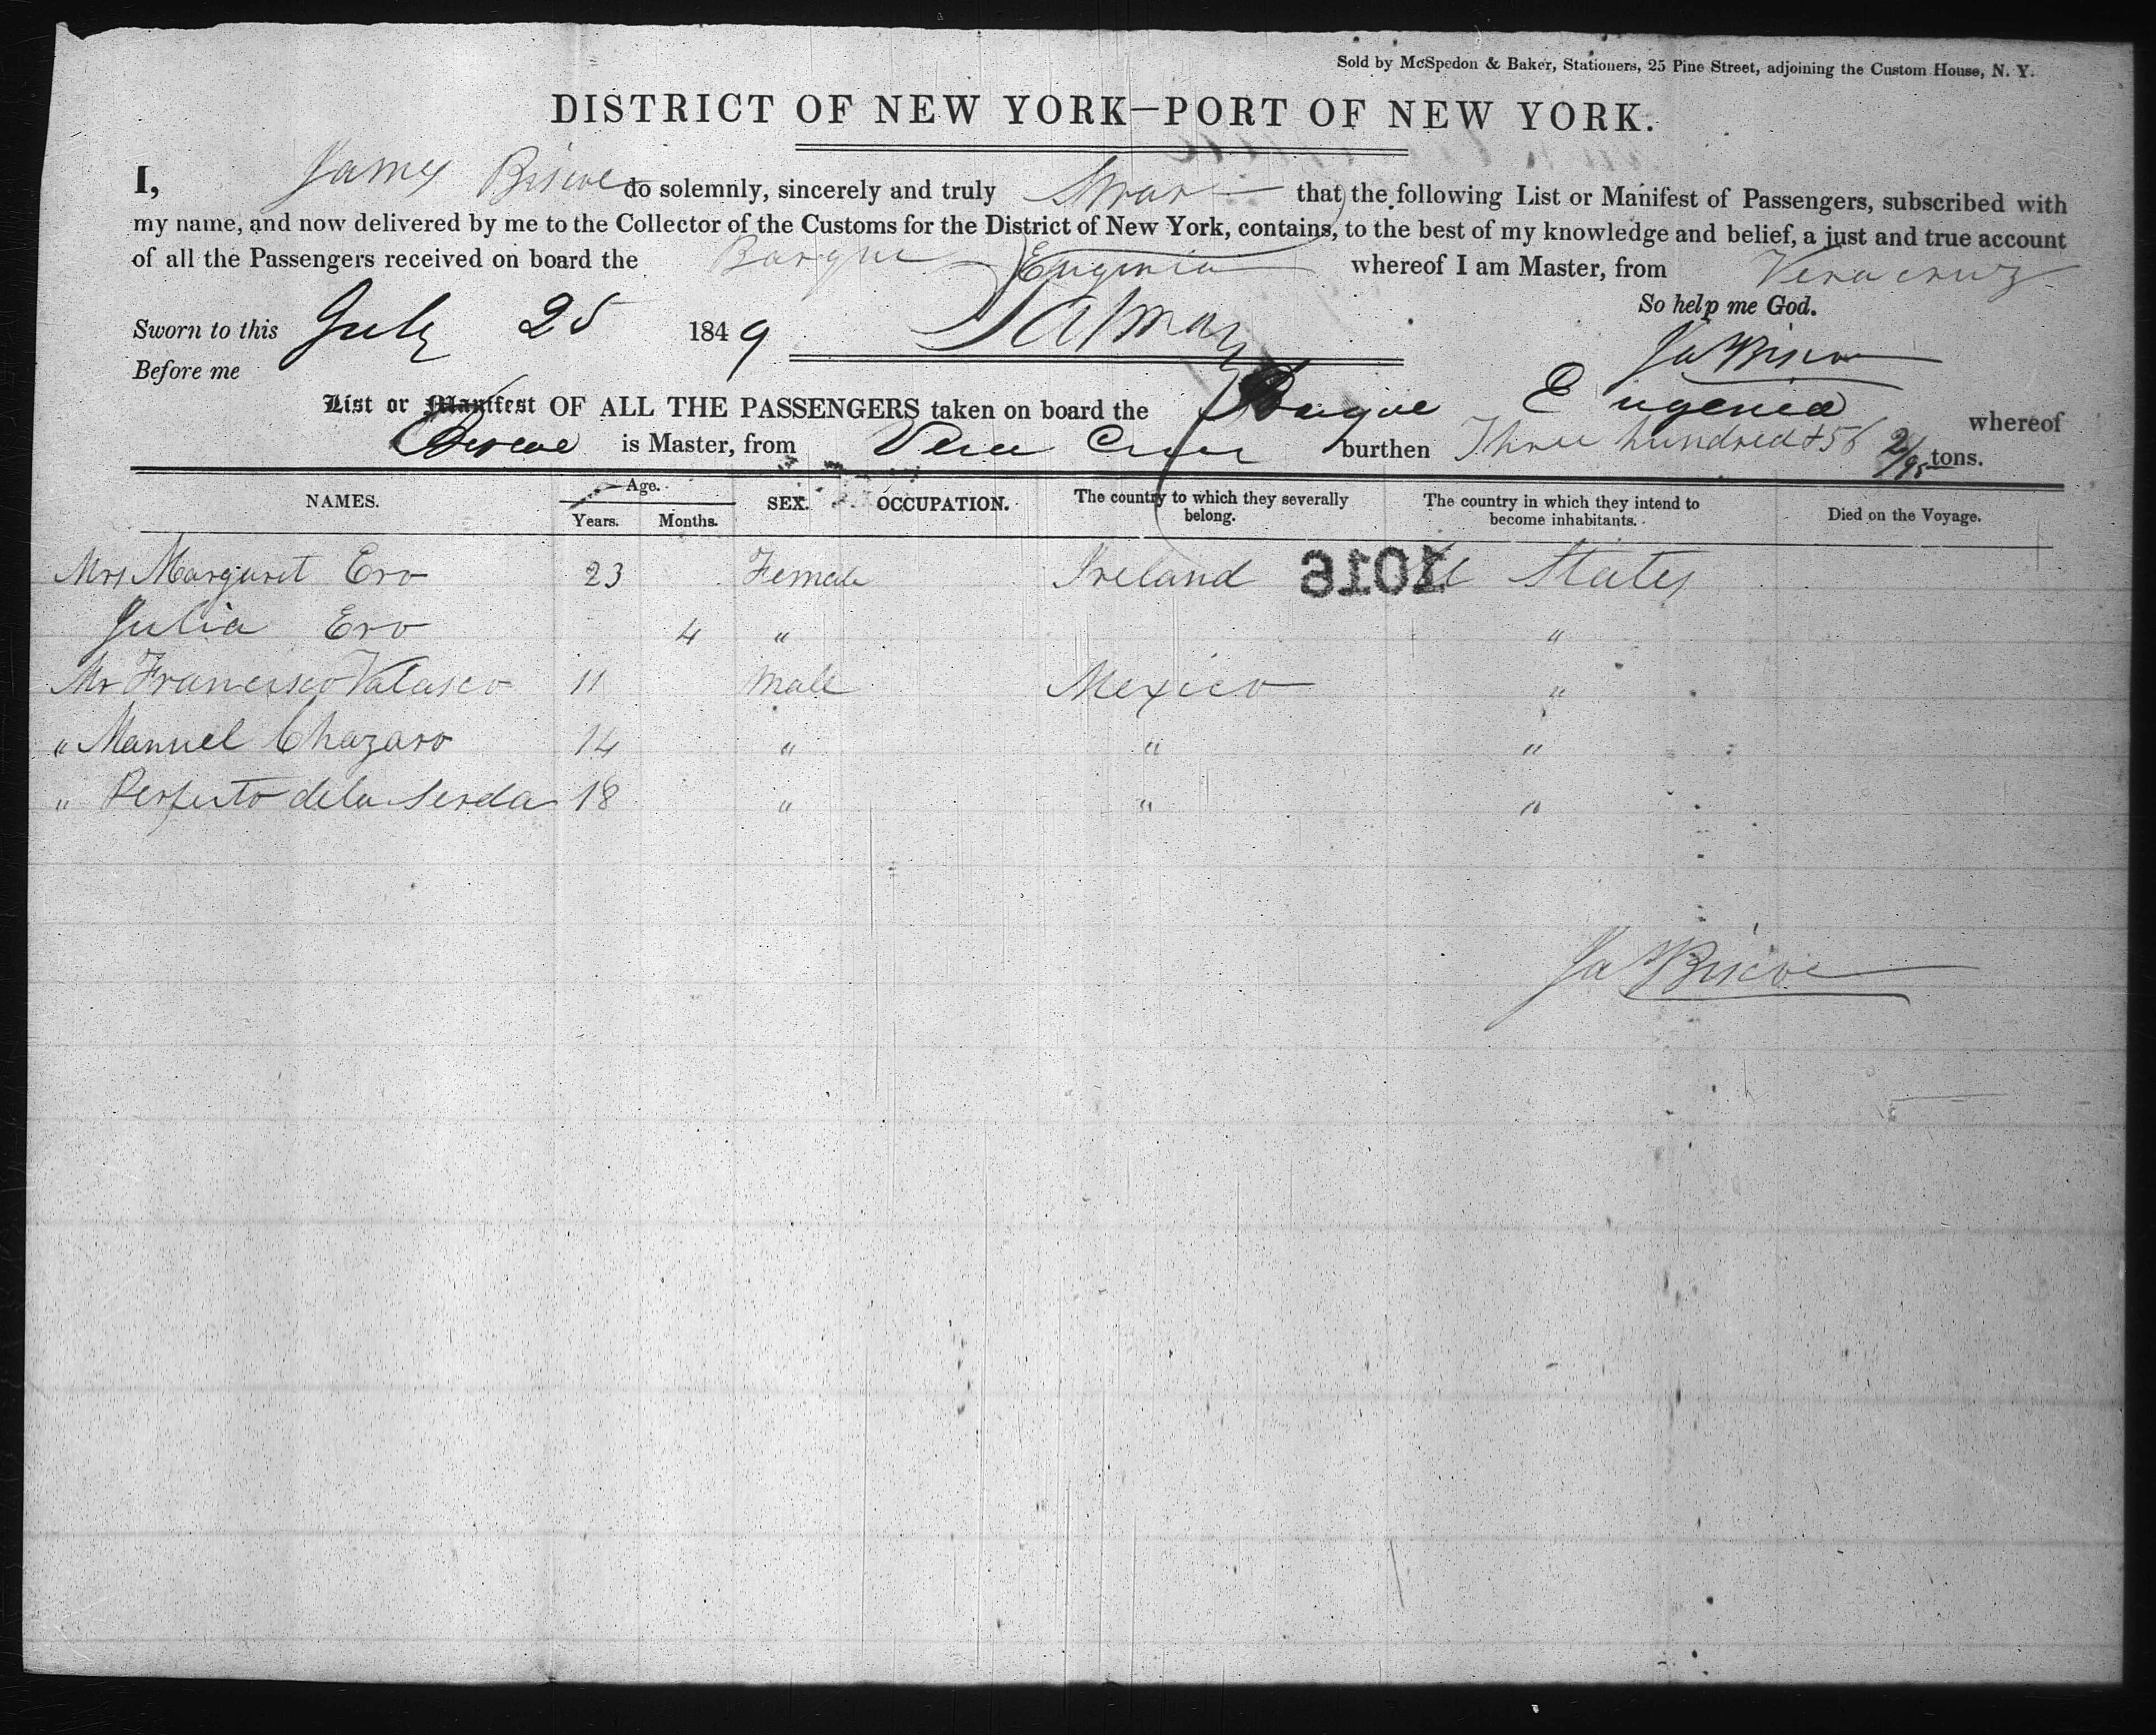 Sold by McSpedon & Baker, Stationers, 25 Pine Street, adjoining the Custom House, N. Y.
DISTRICT OF NEW YORK—PORT OF NEW YORK.
I, James Biscoe do solemnly, sincerely and truly Swear that the following List or Manifest of Passengers, subscribed with
my name, and now delivered by me to the Collector of the Customs for the District of New York, contains, to the best of my knowledge and belief, a just and true account
of all the Passengers received on board the Barque Eugenia whereof I am Master, from Vera cruz
So help me God.
Sworn to this July 25 1849
Jas Biscoe
Before me
List or Manifest OF ALL THE PASSENGERS taken on board the Barque Eugenia whereof
Biscoe is Master, from Vera Cruz burthen Three hundred & 56 2/95 tons.
NAMES. Age. Years. Months. SEX. OCCUPATION. The country to which they severally belong. The country in which they intend to become inhabitants. Died on the Voyage.
Mrs Margaret Ero 23 Female Ireland 1016 States
Julia Ero 4 " "
Mr Francisco Valasco 11 Male Mexico "
" Manuel Chazaro 14 " " "
" Perfecto de la Serda 18 " " "
Jas Biscoe